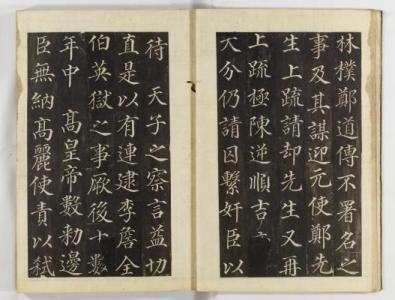 林樸鄭道傳不署名之
事及其謀迎元使鄭先
生上疏請却先生又再
上疏極陳逆順吉
大分仍請囚繫奸臣以
待 天子之察言益切
直是以有連逮李詹全
伯英獄之事厥後十數
年中 高皇帝數勅邊
臣無納高麗使責以弑